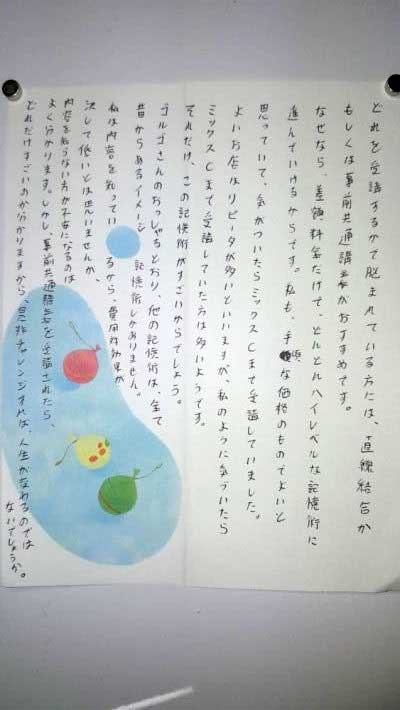 どれを受講するかで悩まれている方には、直線結合か
もしくは事前共通講義がおすすめです。
なぜなら、差額料金だけで、どんどんハイレベルな記憶術に
進んでいけるからです。私も、手頃な価格のものでよいと
思っていて、気がついたらミックスCまで受講していました。
よいお店はリピータが多いといいますが、私のように気づいたら
ミックスCまで受講していた方は多いようです。
それだけ、この記憶術がすごいからでしょう。
ゴルゴさんのおっしゃるとおり、他の記憶術は、全て
昔からあるイメージ記憶術しかありません。
私は内容を知っているから、費用対効果が
決して低いとは思いませんが、
内容を知らない方が不安になるのは
よく分かります。しかし、事前共通講義を受講されたら、
どれだけすごいのか分かりますから、是非チャレンジすれば、人生がかわるのでは
ないでしょうか。